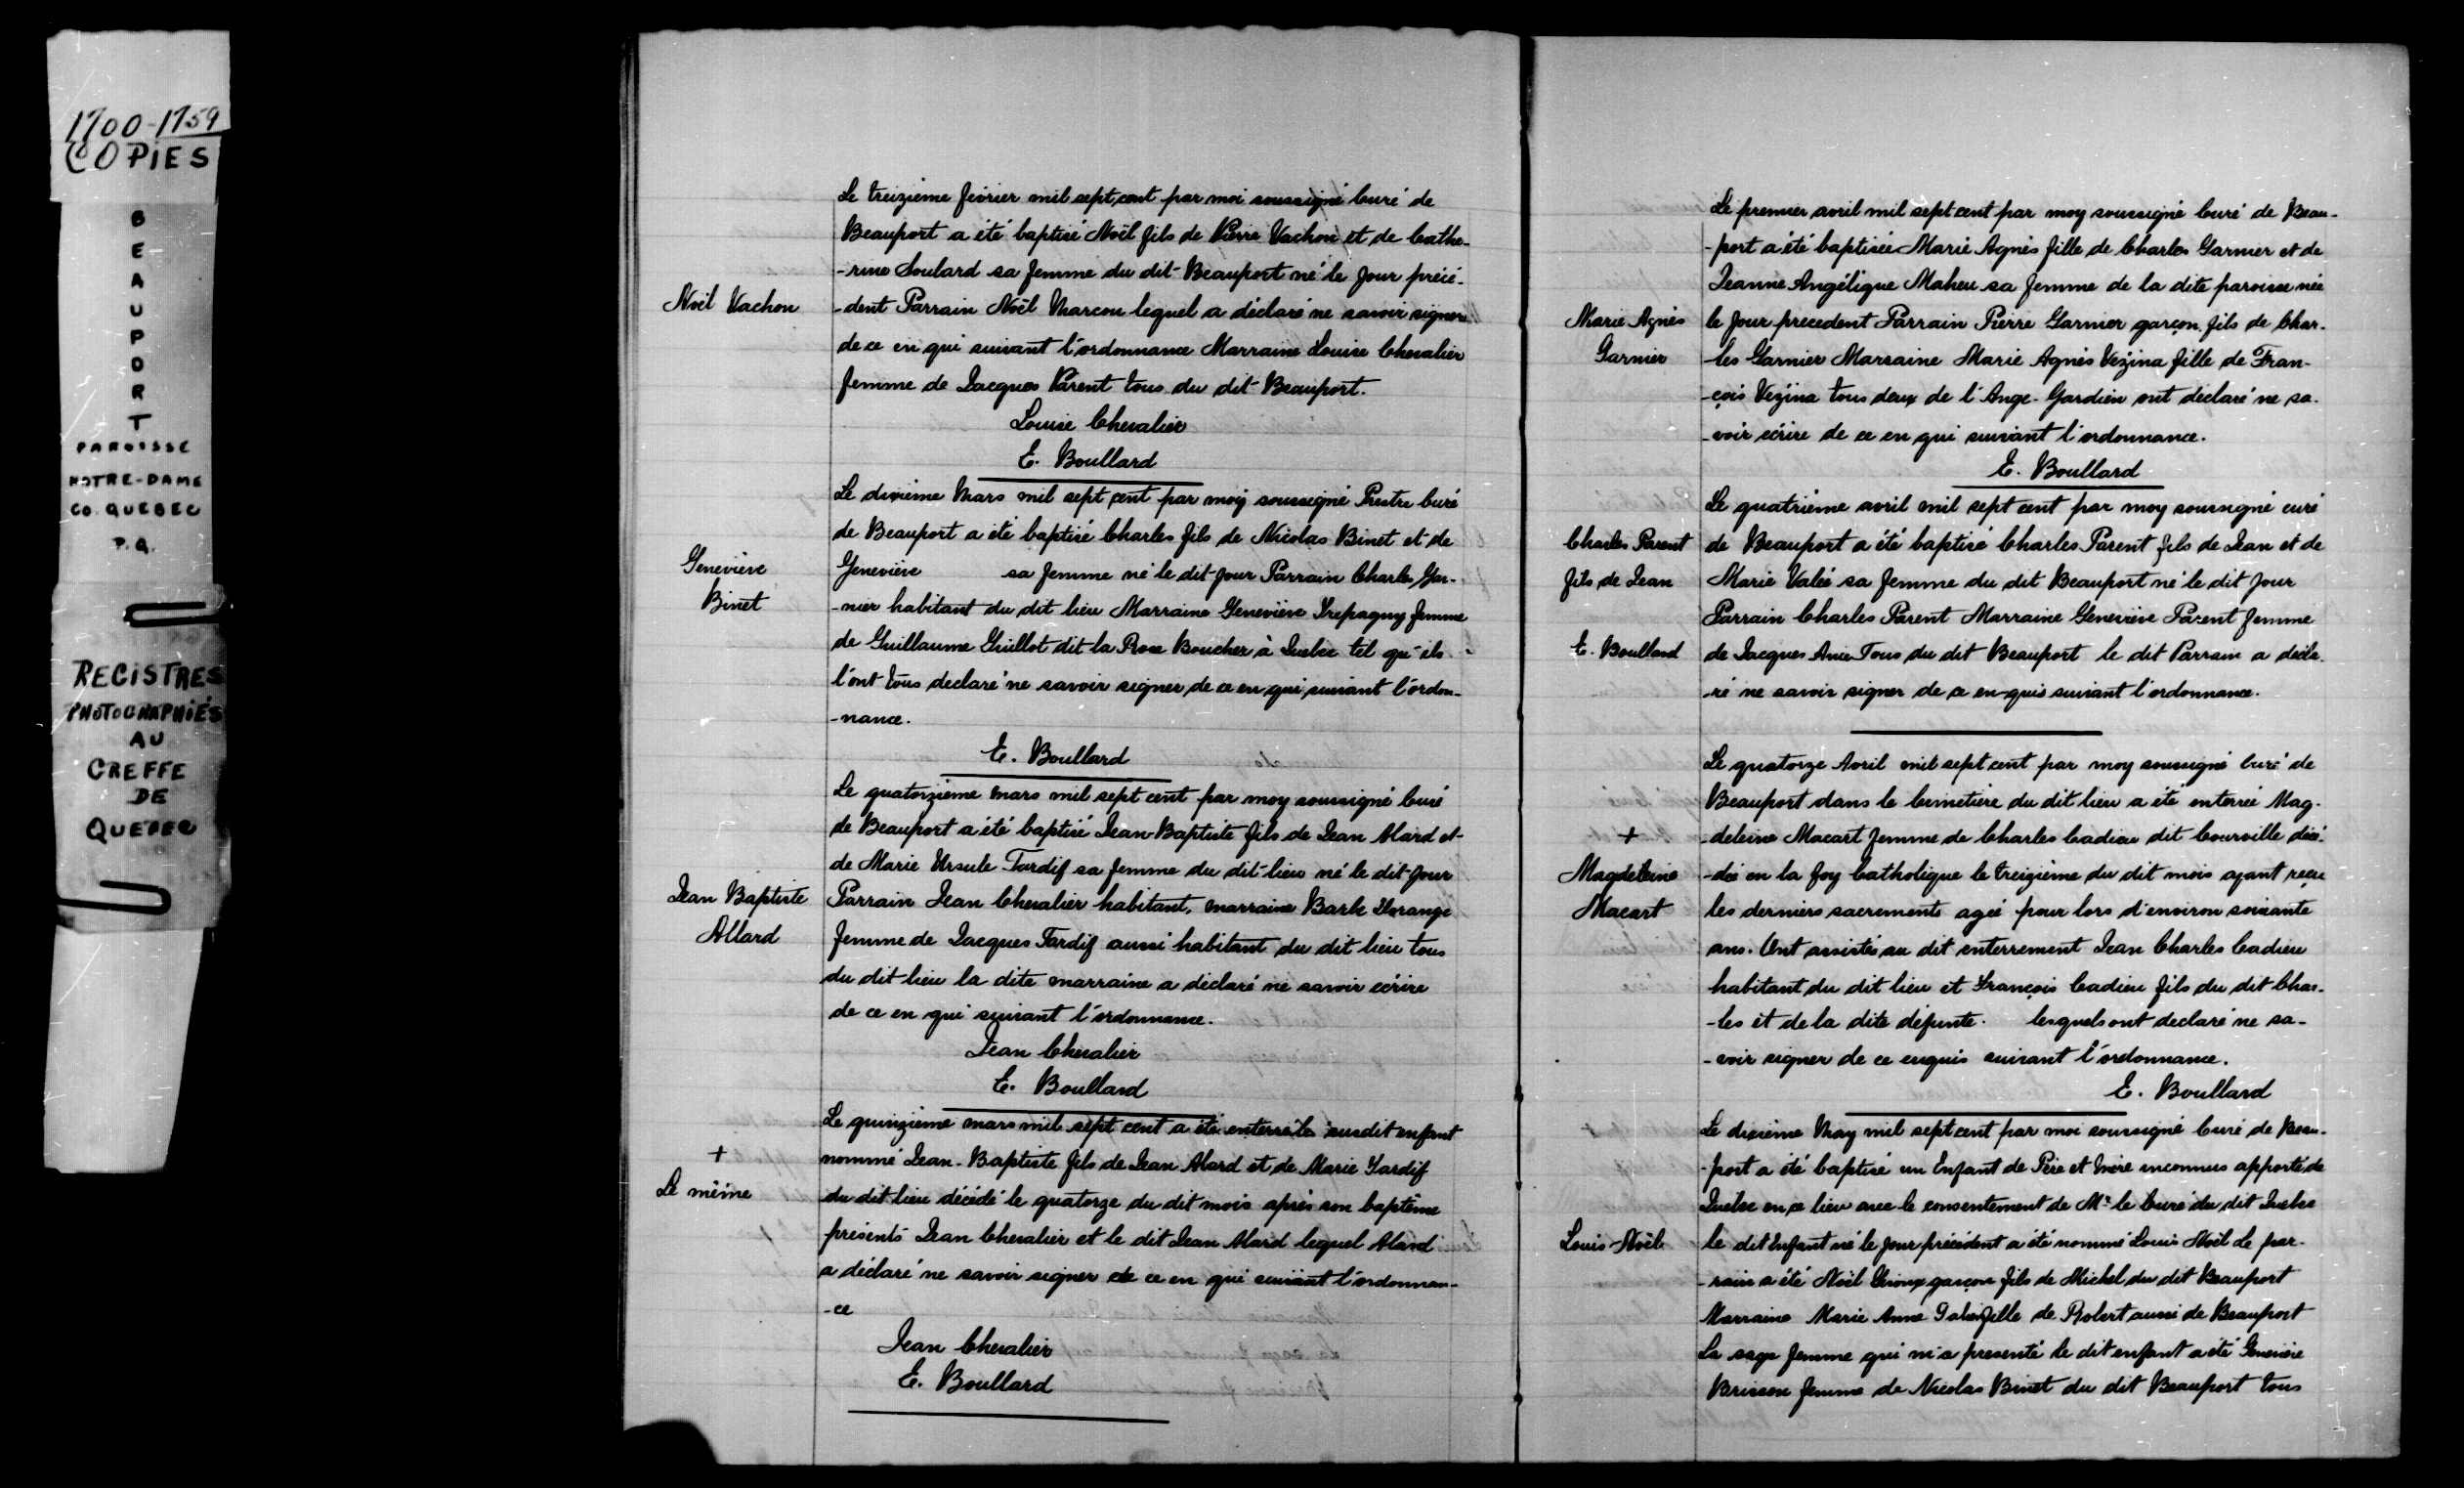 1700-1759
COPIES
BEAUPORT
PAROISSE
NOTRE-DAME
CO. QUEBEC
P.Q.
REGISTRES
PHOTOGRAPHIÉS
AU
GREFFE
DE
QUEBEC
Le treizième février mil sept cent par moi soussigné Curé de
Beauport a été baptisé Noël fils de Pierre Vachon et de Cathe-
-rine Soulard sa femme du dit Beauport né le jour précé-
Noël Vachon
-dent Parrain Noël Marcou lequel a déclaré ne savoir signer
de ce en qui suivant l'ordonnance Marraine Louise Chevalier
femme de Jacques Parent tous du dit Beauport.
Louise Chevalier
E. Boullard
Le dixième Mars mil sept cent par moy soussigné Prestre Curé
de Beauport a été baptisé Charles fils de Nicolas Binet et de
Geneviève
Binet
Geneviève sa femme né le dit jour Parrain Charles Gar-
-nier habitant du dit lieu Marraine Geneviève Trepagny femme
de Guillaume Guillot dit la Rose Boucher à Quebec tel qu'ils
l'ont tous declaré ne savoir signer de ce en qui suivant l'ordon-
-nance.
E. Boullard
Le quatorzième mars mil sept cent par moy soussigné Curé
de Beauport a été baptisé Jean Baptiste fils de Jean Alard et
de Marie Ursule Tardif sa femme du dit lieu né le dit jour
Jean Baptiste
Allard
Parrain Jean Chevalier habitant, marraine Barbe
femme de Jacques Tardif aussi habitant du dit lieu tous
du dit lieu la dite marraine a déclaré ne savoir écrire
de ce en qui suivant l'ordonnance.
Jean Chevalier
E. Boullard
Le quinzième mars mil sept cent a été enterré le susdit enfant
+
Le même
nommé Jean-Baptiste fils de Jean Alard et de Marie Tardif
du dit lieu décédé le quatorze du dit mois après son baptême
présents Jean Chevalier et le dit Jean Alard lequel Alard
a déclaré ne savoir signer de ce en qui suivant l'ordonnan-
-ce
Jean Chevalier
E. Boullard
Le premier avril mil sept cent par moy soussigné Curé de Beau-
-port a été baptisée Marie Agnès fille de Charles Garnier et de
Jeanne Angélique Maheu sa femme de la dite paroisse née
Marie Agnès
Garnier
le jour precedent Parrain Pierre Garnier garçon fils de Char-
-les Garnier Marraine Marie Agnès Vezina fille de Fran-
-çois Vézina tous deux de l'Ange-Gardien ont declaré ne sa-
-voir écrire de ce en qui suivant l'ordonnance.
E. Boullard
Le quatrième avril mil sept cent par moy soussigné curé
Charles Parent
fils de Jean
E. Boullard
de Beauport a été baptisé Charles Parent fils de Jean et de
Marie Valée sa femme du dit Beauport né le dit jour
Parrain Charles Parent Marraine Geneviève Parent femme
de Jacques Tous du dit Beauport le dit Parrain a décla-
-ré ne savoir signer de ce en-quis suivant l'ordonnance.
Le quatorze Avril mil sept cent par moy soussigné Curé de
Beauport dans le Cimetière du dit lieu a été enterrée Mag-
+
Magdeleine
Macart
-deleine Macart femme de Charles Cadieu dit Courville décé-
-dée en la foy Catholique le treizième du dit mois ayant reçu
les derniers sacrements agée pour lors d'environ soixante
ans. Ont assistés au dit enterrement Jean Charles Cadieu
habitant du dit lieu et François Cadieu fils du dit Char-
-les et de la dite défunte. lesquels ont declaré ne sa-
-voir signer de ce enquis suivant l'ordonnance.
E. Boullard
Le dixième May mil sept cent par moi soussigné Curé de Beau-
-port a été baptisé un Enfant de Père et Mère inconnus apporté de
Quebec en ce lieu avec le consentement de Mr le Curé du dit Quebec
Louis-Noël
le dit Enfant né le jour précédent a été nommé Louis Noël Le par-
-rain a été Noël Giroux garçon fils de Michel du dit Beauport
Marraine Marie Anne fille de Robert aussi de Beauport
La sage femme qui m'a presenté le dit enfant a été Geneviève
Brisson femme de Nicolas Binet du dit Beauport tous